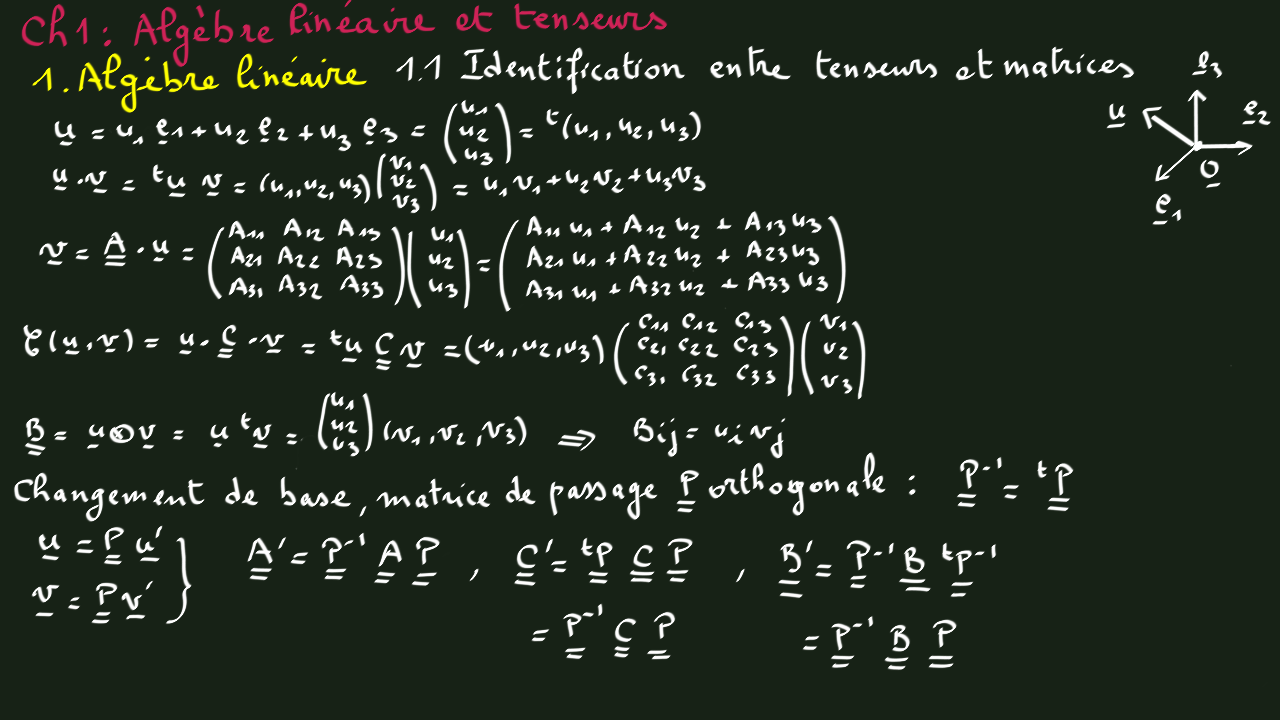 Ch1: Algèbre linéaire et tenseurs
1. Algèbre linéaire 1.1 Identification entre tenseurs et matrices
u = u1 e1 + u2 e2 + u3 e3 = (u1 u2 u3) = t(u1, u2, u3)
u · v = tu v = (u1, u2, u3) (v1 v2 v3) = u1 v1 + u2 v2 + u3 v3
v = A · u = (A11 A12 A13 A21 A22 A23 A31 A32 A33) (u1 u2 u3) = (A11 u1 + A12 u2 + A13 u3 A21 u1 + A22 u2 + A23 u3 A31 u1 + A32 u2 + A33 u3)
C(u, v) = u · C · v = tu C v = (u1, u2, u3) (C11 C12 C13 C21 C22 C23 C31 C32 C33) (v1 v2 v3)
B = u ⊗ v = u tv = (u1 u2 u3) (v1, v2, v3) ⇒ Bij = ui vj
Changement de base, matrice de passage P orthogonale : P⁻¹ = tP
u = P u' } A' = P⁻¹ A P , C' = tP C P , B' = P⁻¹ B tP⁻¹
v = P v'
= P⁻¹ C P = P⁻¹ B P
e3
u
e2
O
e1